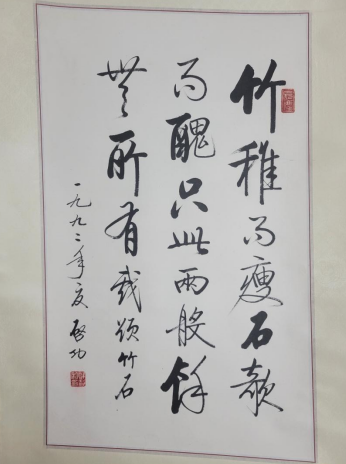 竹稚而瘦石
而醜只此兩般餘
無所有戲題竹石
一九九二年夏 啓功